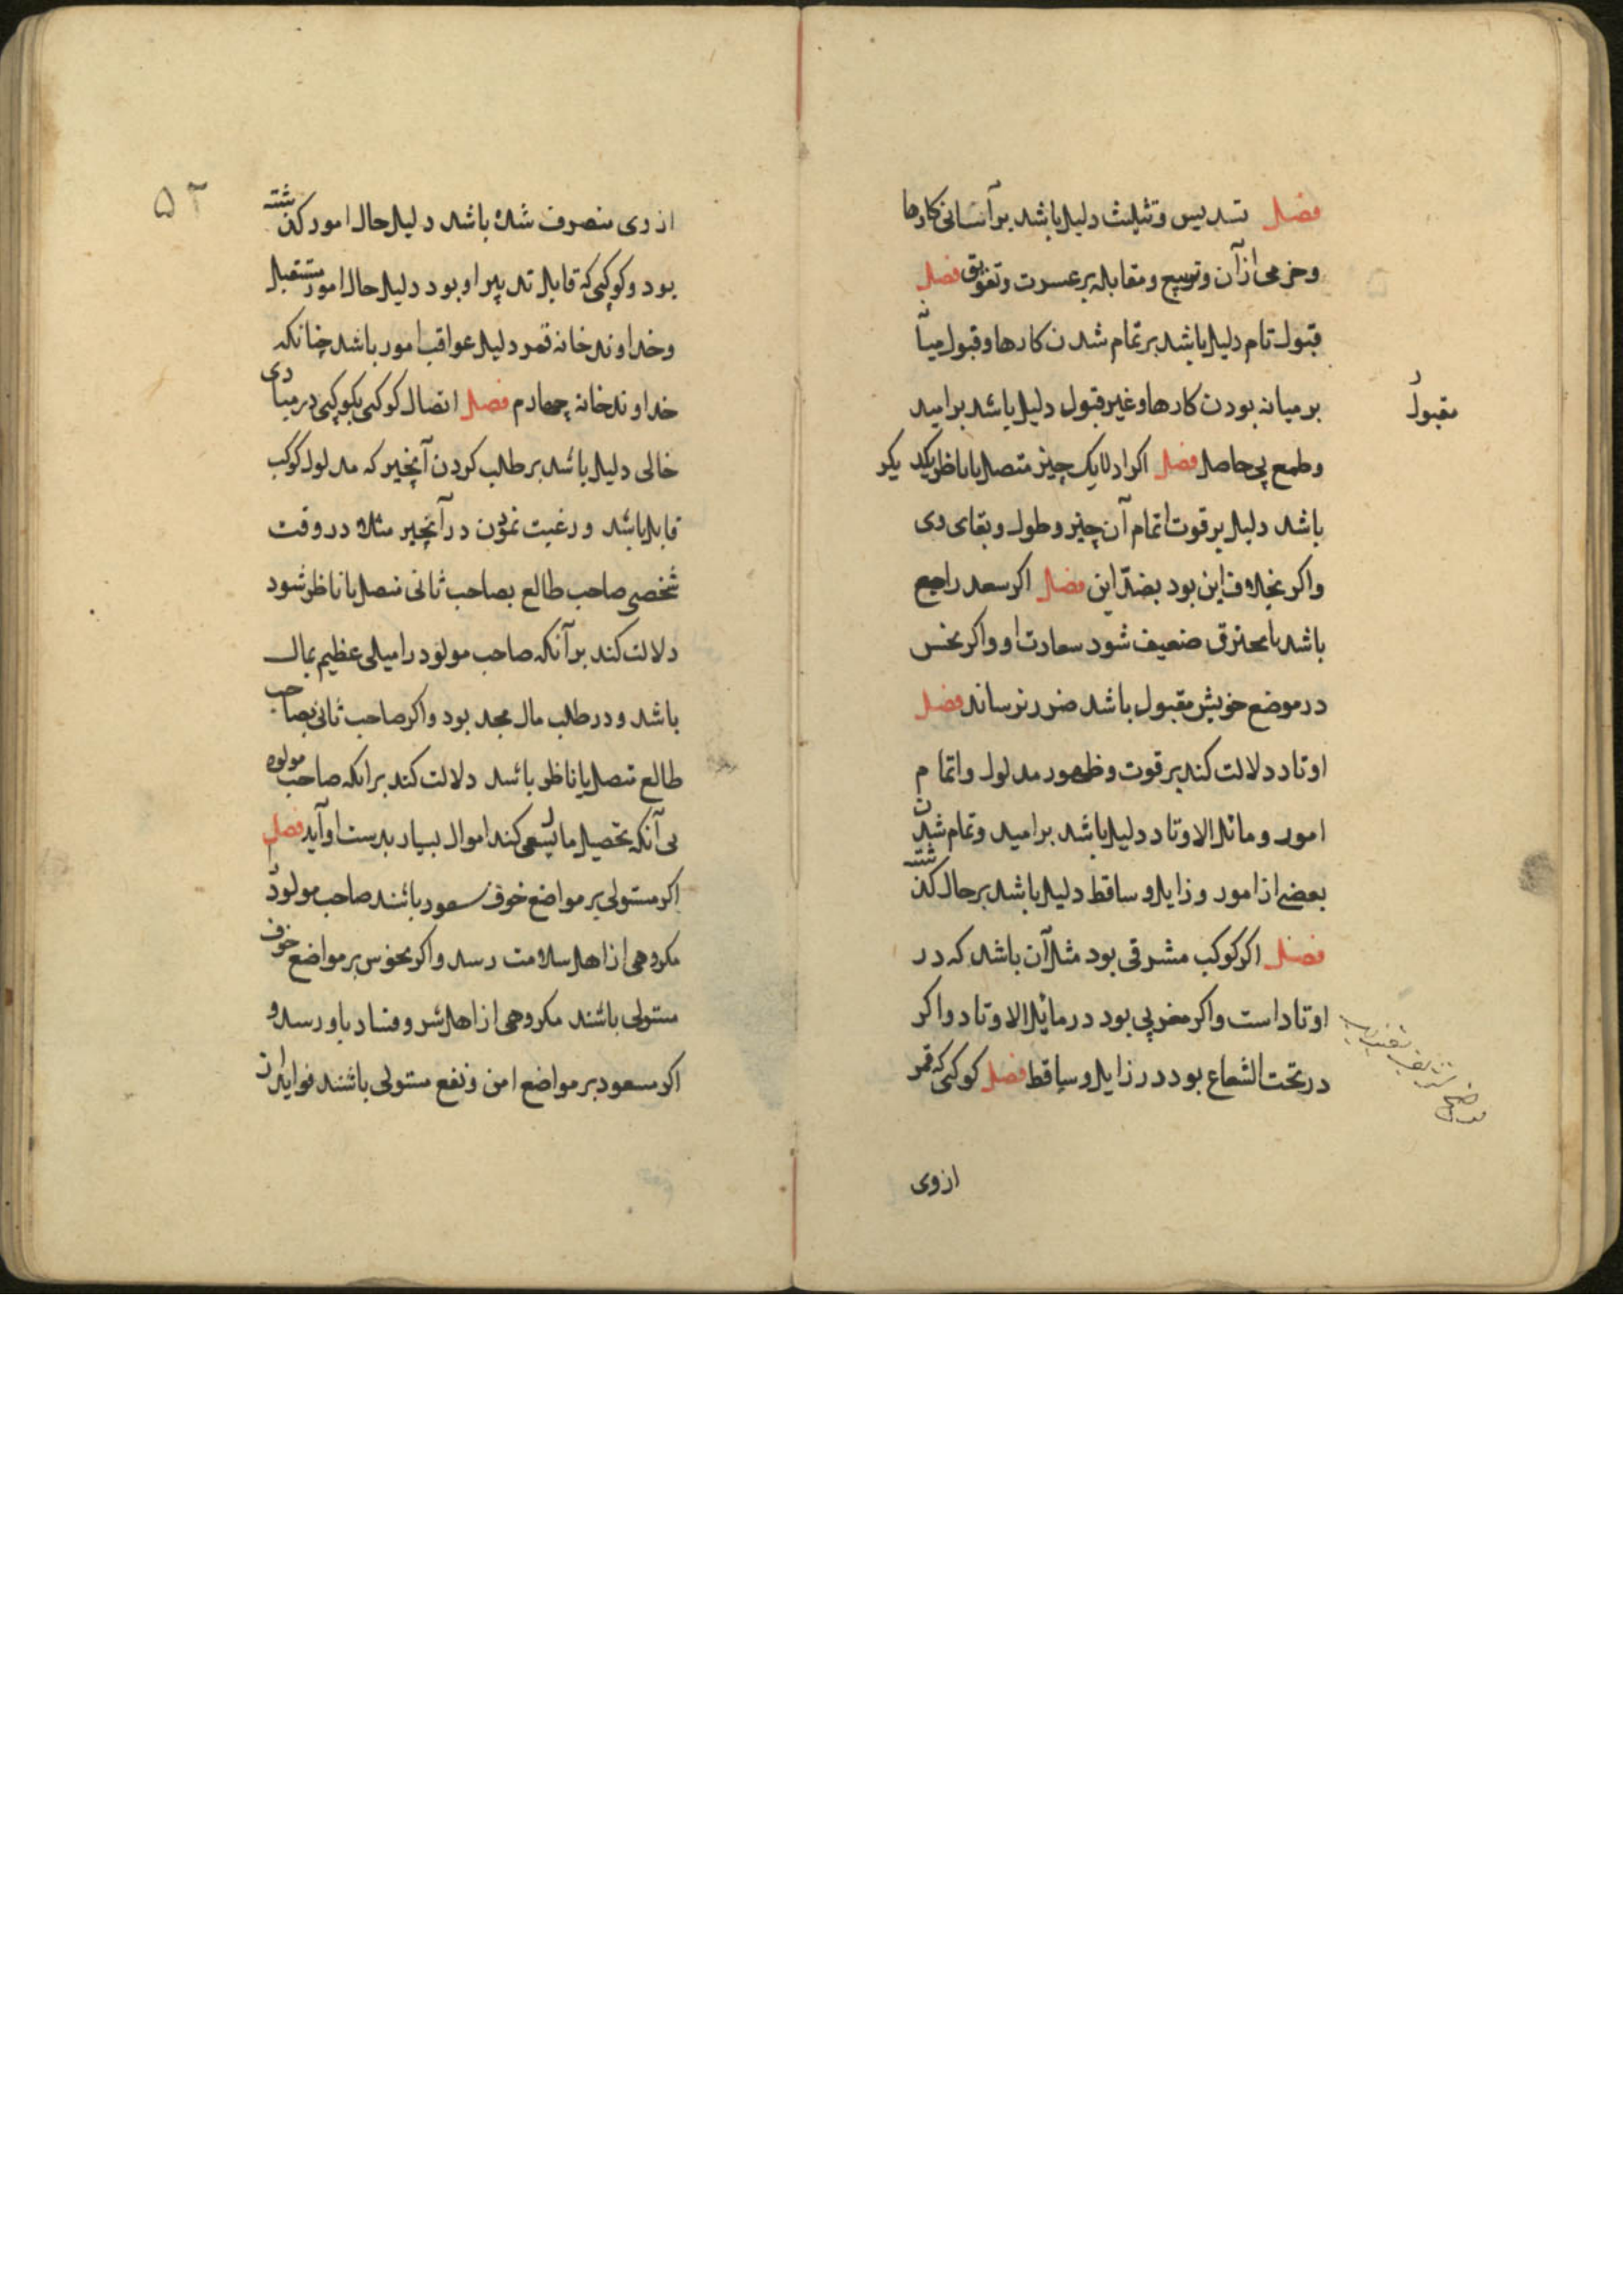 فصل تسدیس وتثلیث دلیل باشد بر آسانی کارها
وخرمی از آن وتربیع ومقابله بر عسرت وتعویق فصل
قبول تام دلیل باشد بر تمام شدن کارها وقبول میا
بر میانه بودن کارها وغیر قبول دلیل باشد بر امید
مقبول
وطمع بی حاصل فصل اکر ادلا یک چیز متصل یا ناظر بیکد یکر
باشد دلیل بر قوت اتمام آن چیز وطول وبقای وی
واکر بخلاف این بود بضدّ این فصل اکر سعد راجع
باشد یا محترق ضعیف شود سعادت او واکر نحس
در موضع خویش مقبول باشد ضرر نرساند فصل
اوتاد دلالت کند بر قوت وظهور مدلول واتمام
امور ومائل الاوتاد دلیل باشد بر امید وتمام شدن
بعضی از امور وزایل وساقط دلیل باشد بر حال کذشته
فصل اکر کوکب مشرقی بود مثل آن باشد که در
اوتاد است واکر مغربی بود در مایل الاوتاد واکر
در تحت الشعاع بود در زایل وساقط فصل کوکبی که قمر
ازوی
۵۲
ازوی منصرف شده باشد دلیل حال امور کذشته
بود وکوکبی که قابل تدبیر او بود دلیل حال امور مستقبل
وخداوند خانه قمر دلیل عواقب امور باشد چنانکه
خداوند خانه چهارم فصل اتصال کوکبی بکوکبی در مبادی
خالی دلیل باشد بر طلب کردن آنچیز که مدلول کوکب
قابل باشد ورغبت نمودن در آنچیز مثلا در وقت
شخصی صاحب طالع بصاحب ثانی متصل یا ناظر شود
دلالت کند بر آنکه صاحب مولود را میلی عظیم بمال
باشد ودر طلب مال مجد بود واکر صاحب ثانی بصاحب
طالع متصل یا ناظر باشد دلالت کند بر انکه صاحب مولود
بی آنکه تحصیل مال سعی کند اموال بسیار بدست او آید فصل
اکر مستولی بر مواضع خوف سعود باشند صاحب مولود را
مکروهی از اهل سلامت رسد واکر نحوس بر مواضع خوف
مستولی باشند مکروهی از اهل شر وفساد باو رسد و
اکر مسعود بر مواضع امن ونفع مستولی باشند فواید از